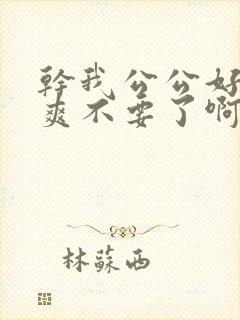 幹我公公好
爽不要了啊
林蘇西